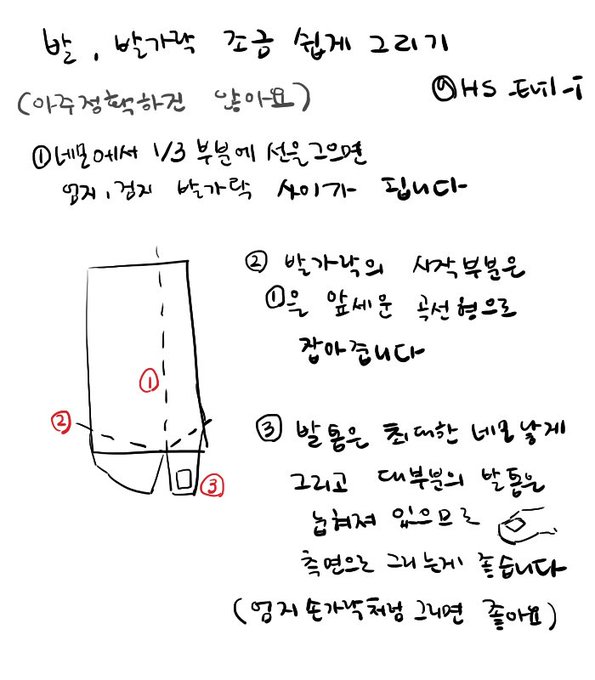 발, 발가락 조금 쉽게 그리기
(아주정확하진 않아요)
@HS_Evil_i
①네모에서 1/3 부분에 선을그으면
엄지, 검지 발가락 사이가 됩니다
② 발가락의 시작부분은
①을 앞세운 곡선형으로
잡아줍니다
①
②
③
③ 발톱은 최대한 네모낳게
그리고 대부분의 발톱은
눕혀져 있으므로
측면으로 그리는게 좋습니다
(엄지손가락처럼 그리면 좋아요)